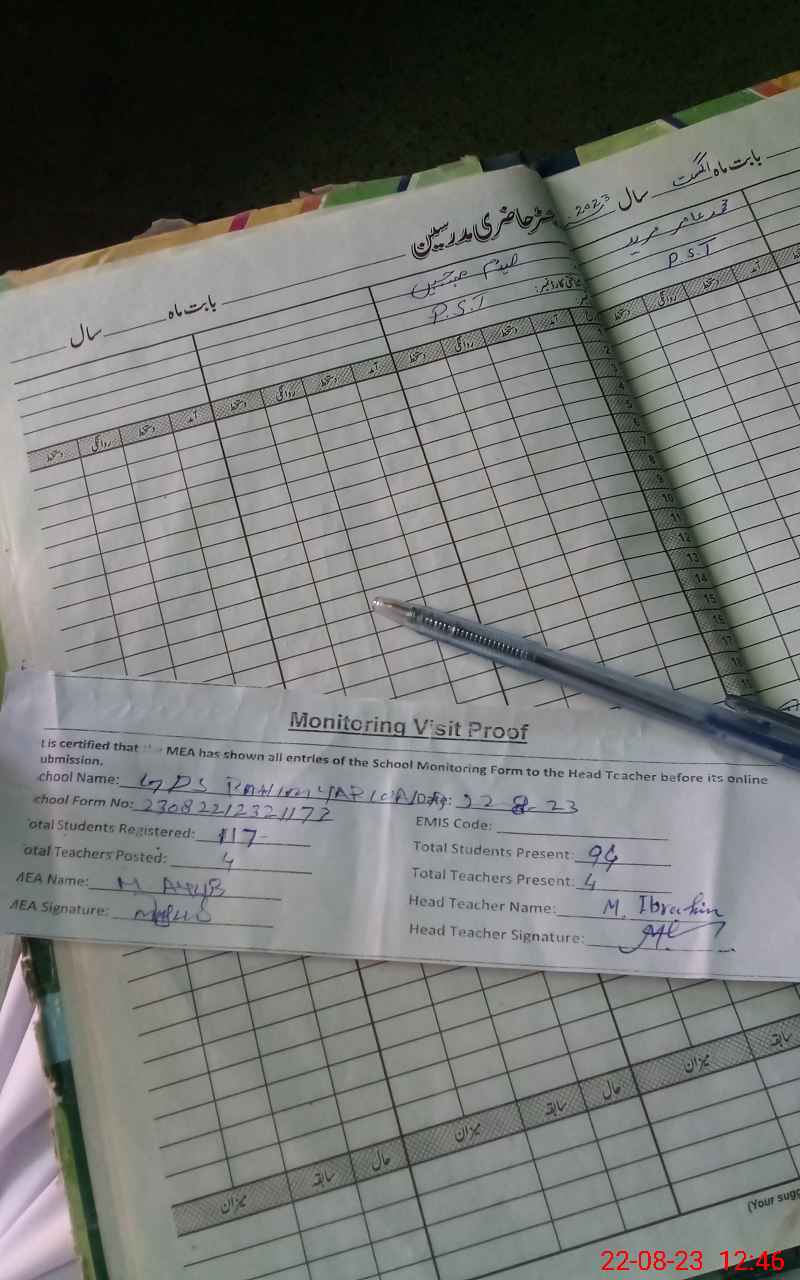 بابت ماہ اگست سال 2023
محمد عامر مرید
P.S.T
رجسٹر حاضری مدرسین
بابت ماہ سال
P.S.T
دستخط روانگی دستخط آمد دستخط روانگی دستخط آمد دستخط روانگی دستخط آمد
دستخط روانگی دستخط آمد
1
2
3
4
5
6
7
8
9
10
11
12
13
14
15
16
17
18
Monitoring Visit Proof
t is certified that the MEA has shown all entries of the School Monitoring Form to the Head Teacher before its online
ubmission.
chool Name: GPS Date: 22 8 23
chool Form No: 23082212321173 EMIS Code:
otal Students Registered: 117 Total Students Present: 94
otal Teachers Posted: 4 Total Teachers Present: 4
MEA Name: M. AYYUB Head Teacher Name: M. Ibrahim
MEA Signature: Head Teacher Signature:
میزان سابقہ حال میزان سابقہ حال میزان سابقہ
(Your sugg
22-08-23 12:46